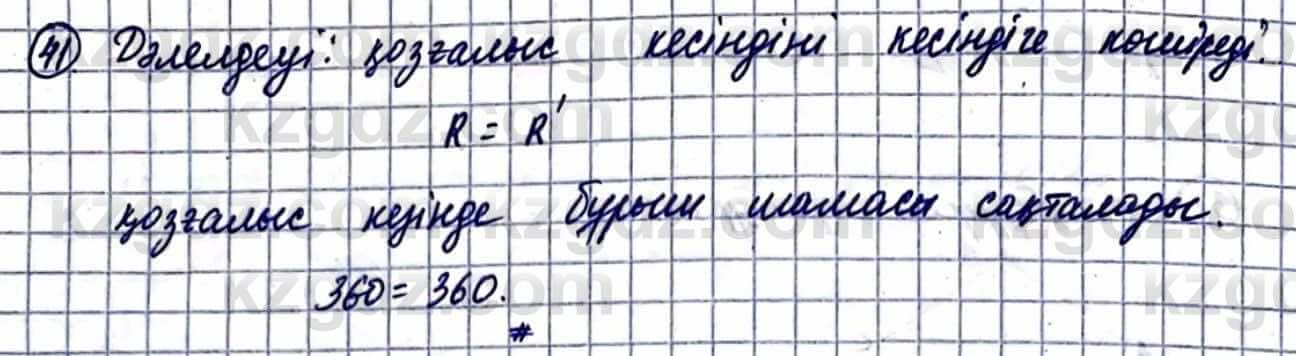 41 Дәлелдеуі: қозғалыс кесіндіні кесіндіге көшіреді.
R = R'
қозғалыс кезінде бұрыш шамасы сақталады.
360 = 360.
#
kzgdz.com